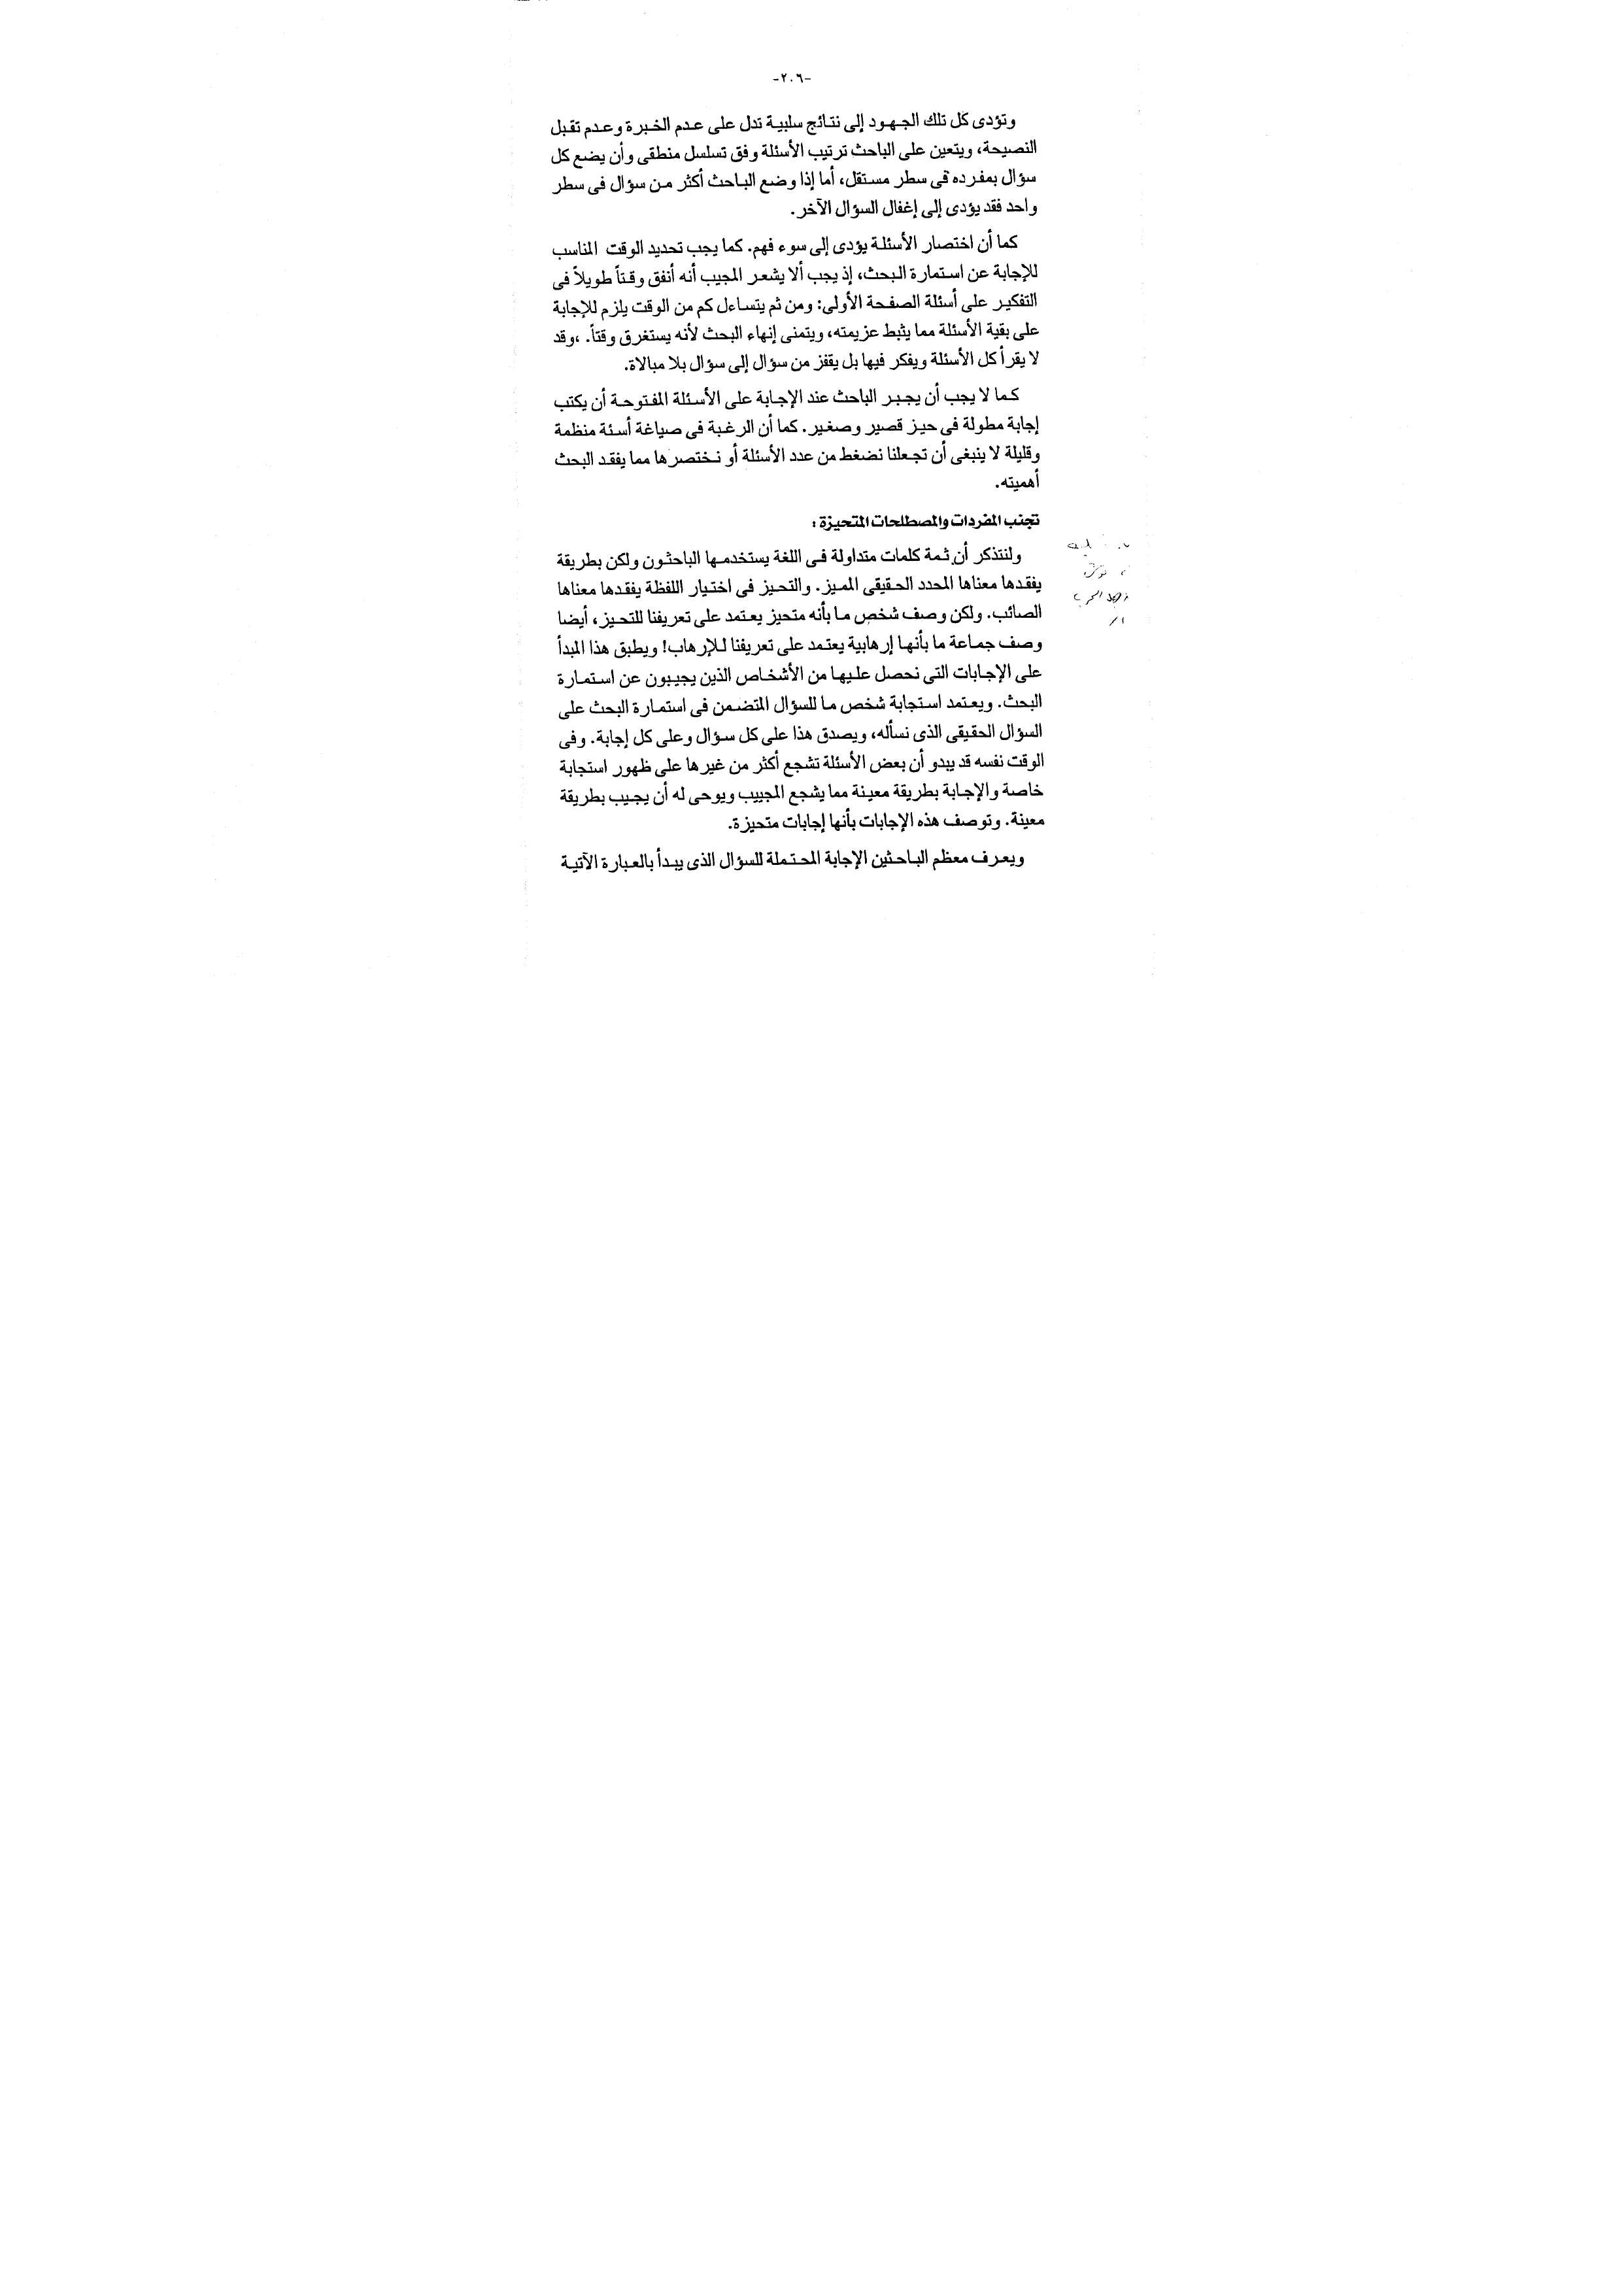 -٢٠٦-
وتؤدى كل تلك الجهود إلى نتائج سلبية تدل على عدم الخبرة وعدم تقبل
النصيحة، ويتعين على الباحث ترتيب الأسئلة وفق تسلسل منطقى وأن يضع كل
سؤال بمفرده فى سطر مستقل، أما إذا وضع الباحث أكثر من سؤال فى سطر
واحد فقد يؤدى إلى إغفال السؤال الآخر.
كما أن اختصار الأسئلة يؤدى إلى سوء فهم. كما يجب تحديد الوقت المناسب
للإجابة عن استمارة البحث، إذ يجب ألا يشعر المجيب أنه أنفق وقتاً طويلاً فى
التفكير على أسئلة الصفحة الأولى: ومن ثم يتساءل كم من الوقت يلزم للإجابة
على بقية الأسئلة مما يثبط عزيمته، ويتمنى إنهاء البحث لأنه يستغرق وقتاً. ،وقد
لا يقرأ كل الأسئلة ويفكر فيها بل يقفز من سؤال إلى سؤال بلا مبالاة.
كما لا يجب أن يجبر الباحث عند الإجابة على الأسئلة المفتوحة أن يكتب
إجابة مطولة فى حيز قصير وصغير. كما أن الرغبة فى صياغة أسئة منظمة
وقليلة لا ينبغى أن تجعلنا نضغط من عدد الأسئلة أو نختصرها مما يفقد البحث
أهميته.
تجنب المفردات والمصطلحات المتحيزة :
ولنتذكر أن ثمة كلمات متداولة فى اللغة يستخدمها الباحثون ولكن بطريقة
يفقدها معناها المحدد الحقيقى المميز. والتحيز فى اختيار اللفظة يفقدها معناها
الصائب. ولكن وصف شخص ما بأنه متحيز يعتمد على تعريفنا للتحيز، أيضا
وصف جماعة ما بأنها إرهابية يعتمد على تعريفنا للإرهاب! ويطبق هذا المبدأ
على الإجابات التى نحصل عليها من الأشخاص الذين يجيبون عن استمارة
البحث. ويعتمد استجابة شخص ما للسؤال المتضمن فى استمارة البحث على
السؤال الحقيقى الذى نسأله، ويصدق هذا على كل سؤال وعلى كل إجابة. وفى
الوقت نفسه قد يبدو أن بعض الأسئلة تشجع أكثر من غيرها على ظهور استجابة
خاصة والإجابة بطريقة معينة مما يشجع المجييب ويوحى له أن يجيب بطريقة
معينة. وتوصف هذه الإجابات بأنها إجابات متحيزة.
ويعرف معظم الباحثين الإجابة المحتملة للسؤال الذى يبدأ بالعبارة الآتية